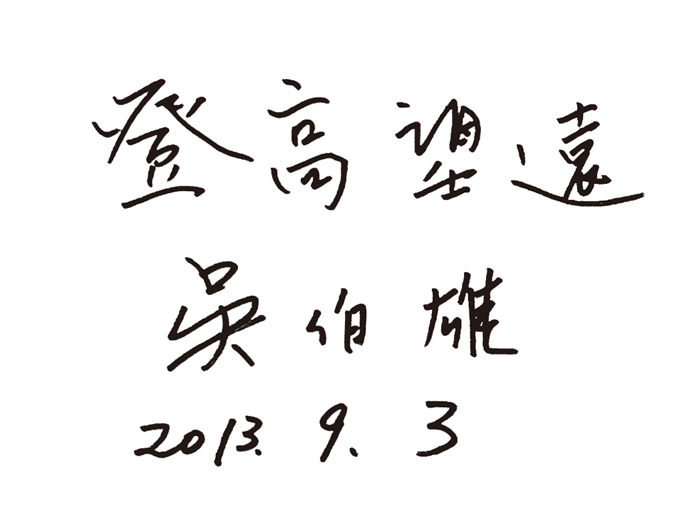 登高望遠
吳伯雄
2013. 9. 3